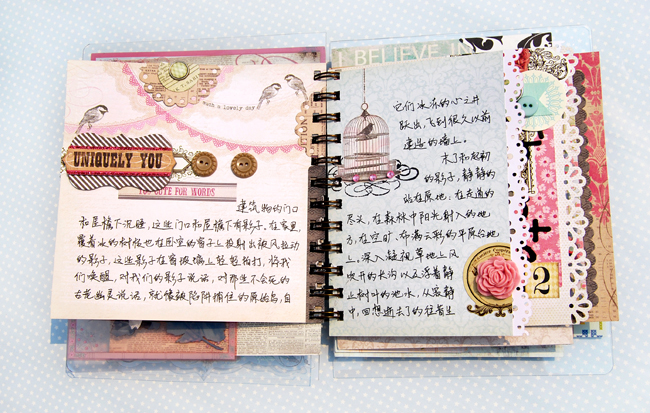 I BELIEVE IN
with a lovely day
UNIQUELY YOU
CUTE FOR WORDS
建筑物的门口
和屋檐下沉睡,这些门口和屋檐下有影子,在家里,
覆着冰的树枝也在卧室的窗子上投射出被风拉动
的影子,这些影子在窗玻璃上轻轻拍打,将我
们唤醒,对我们的影子说话,对那些不会死的
古老幽灵说话,就像被陷阱捕住的鸟,自
它们冰冻的心之井
跃出,飞到很久以前
建造的墙上。
和起初
的影子,静静的
站在原地,在走道的
尽头,在森林中阳光射入的地
方,在空旷、布满云彩的平原谷地
上,深入凝视草地上风
吹开的长沟以及浮着静
止树叶的池水,从寂静
中,回想逝去了的往昔生
2